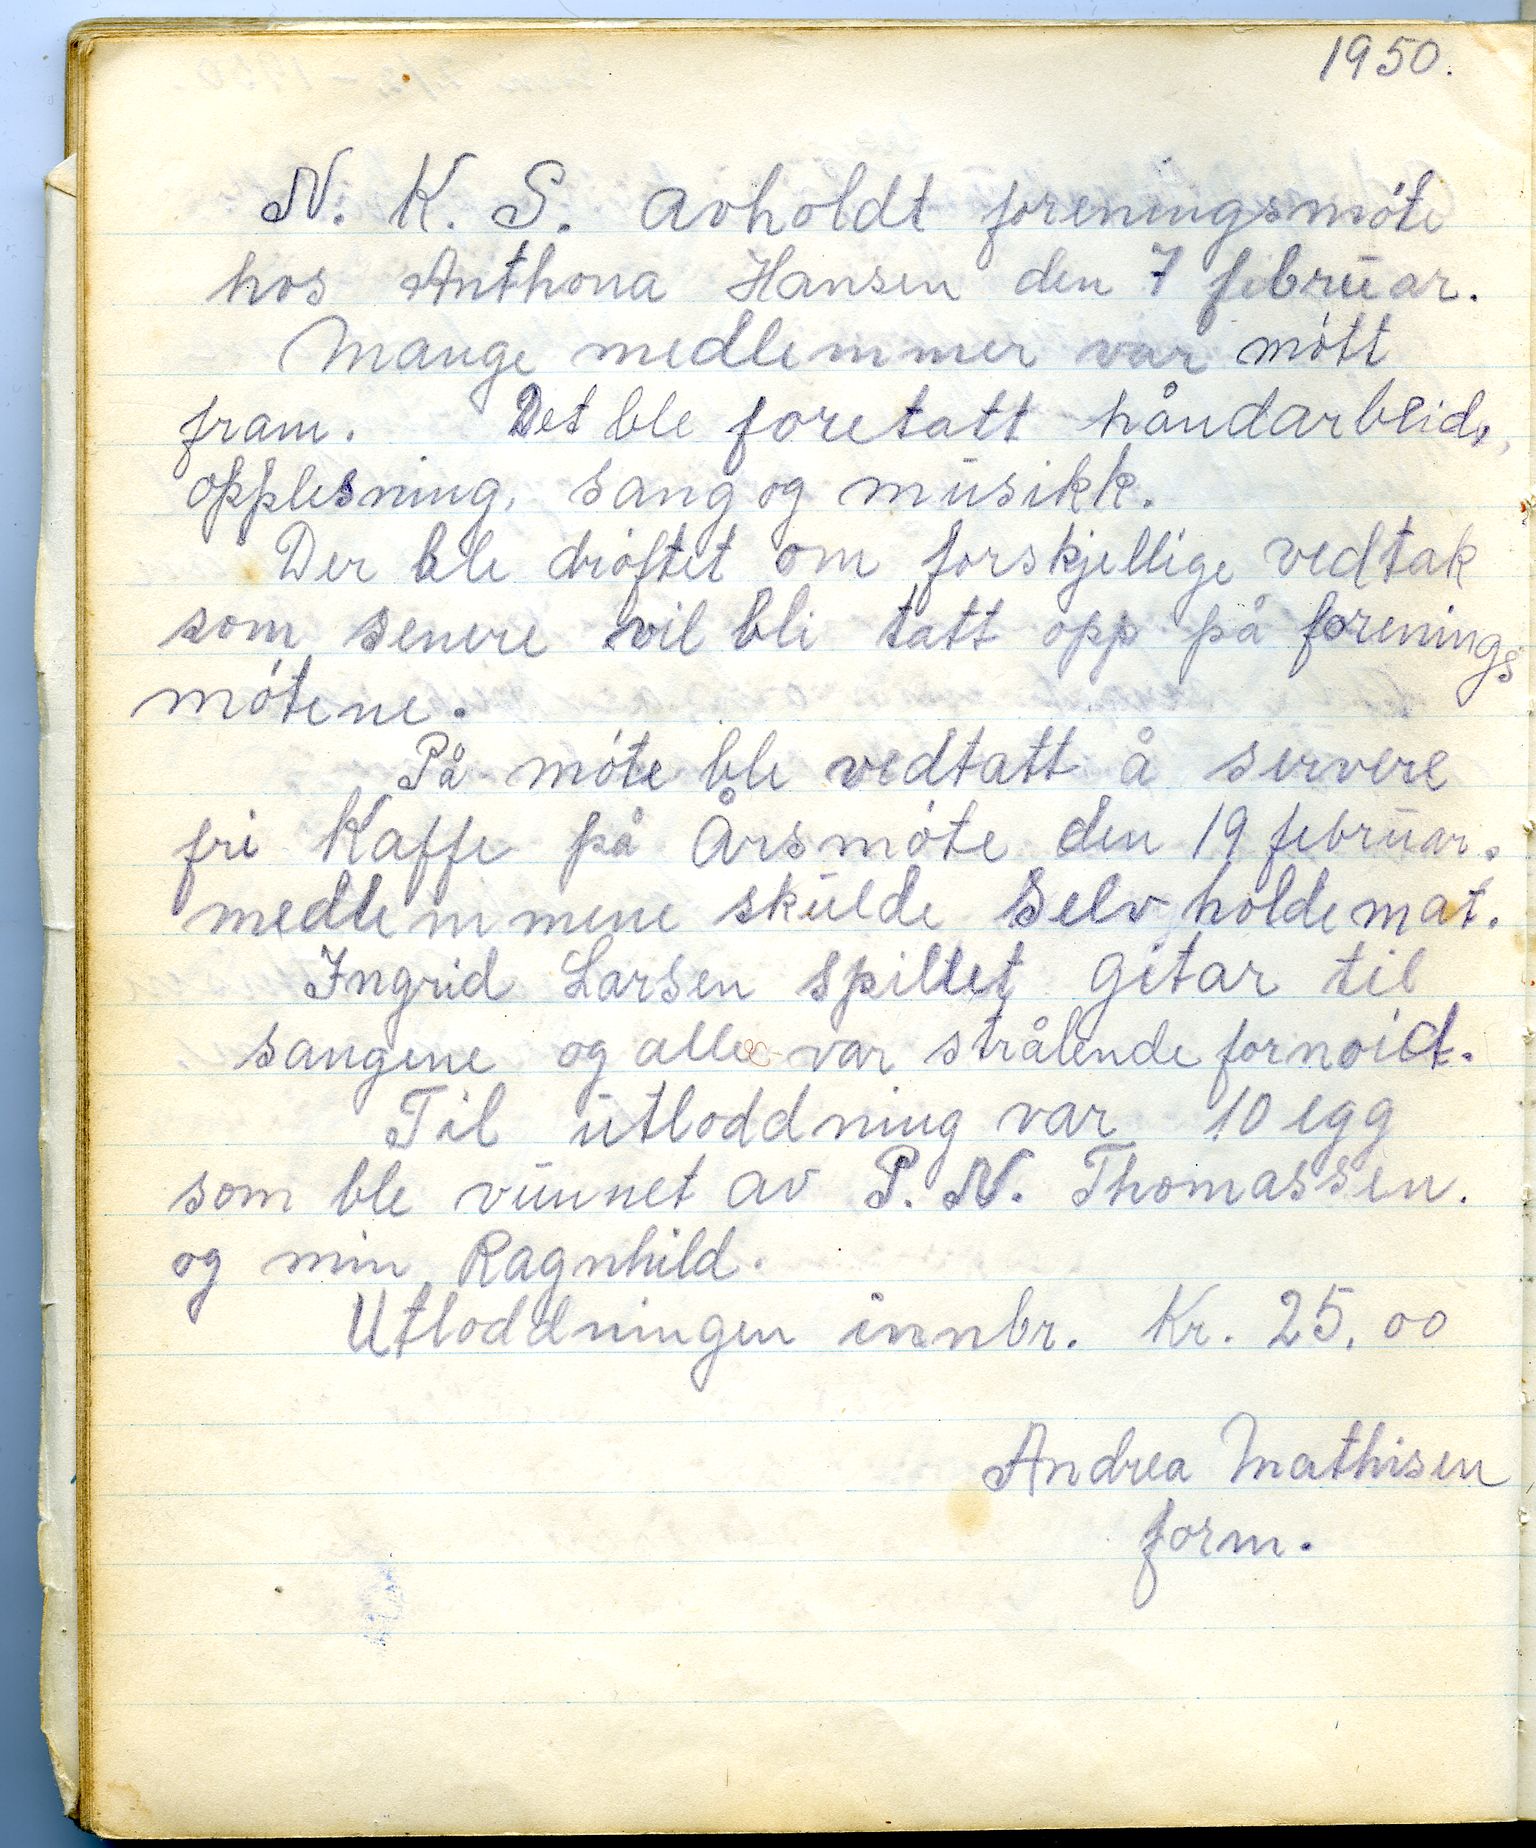 1950.
N. K. S. avholdt foreningsmóte
hos Anthona Hansen den 7 februar.
Mange medlemmer var mótt
fram. Det ble foretatt håndarbeid,
opplesning, sang og musikk.
Der ble dróftet om forskjellige vedtak
som senere vil bli tatt opp på forenings
mótene.
På móte ble vedtatt å servere
fri Kaffe på Årsmóte den 19 februar.
medlemmene skulde selv holde mat.
Ingrid Larsen spillet gitar til
sangene og alle var strålende fornóid.
Til utloddning var 10 egg
som ble vunnet av P. N. Thomassen.
og min Ragnhild.
Utloddningen innbr. Kr. 25,00
Andrea Mathisen
form.